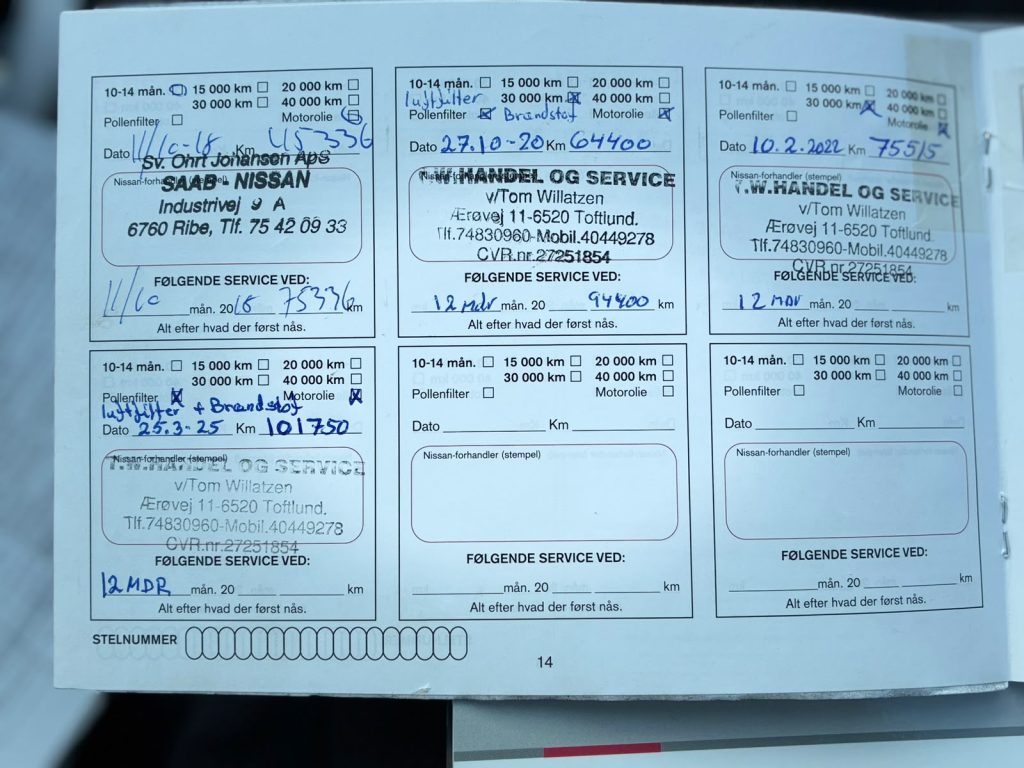 10-14 mån. ☐ 15 000 km ☐ 20 000 km ☐
30 000 km ☐ 40 000 km ☐
Pollenfilter ☐ Motorolie ☐
Dato 11/10-18 Km 45336
Sv. Ohrt Johansen ApS
Nissan-forhandler (stempel)
SAAB - NISSAN
Industrivej 9 A
6760 Ribe, Tlf. 75 42 09 33
FØLGENDE SERVICE VED:
11/10 mån. 2018 75336 km
Alt efter hvad der først nås.
10-14 mån. ☐ 15 000 km ☐ 20 000 km ☐
luftfilter 30 000 km ☒ 40 000 km ☐
Pollenfilter ☒ Brændstof Motorolie ☒
Dato 27.10-20 Km 64400
Nissan-forhandler (stempel)
T.W.HANDEL OG SERVICE
v/Tom Willatzen
Ærøvej 11-6520 Toftlund.
Tlf.74830960-Mobil.40449278
CVR.nr.27251854
FØLGENDE SERVICE VED:
12 Mdr mån. 20 94400 km
Alt efter hvad der først nås.
10-14 mån. ☐ 15 000 km ☐ 20 000 km ☐
30 000 km ☒ 40 000 km ☐
Pollenfilter ☐ Motorolie ☒
Dato 10.2.2022 Km 75515
Nissan-forhandler (stempel)
T.W.HANDEL OG SERVICE
v/Tom Willatzen
Ærøvej 11-6520 Toftlund.
Tlf.74830960-Mobil.40449278
CVR.nr.27251854
FØLGENDE SERVICE VED:
12 MDR mån. 20 km
Alt efter hvad der først nås.
10-14 mån. ☐ 15 000 km ☐ 20 000 km ☐
30 000 km ☐ 40 000 km ☐
Pollenfilter ☒ Motorolie ☒
luftfilter + Brændstof
Dato 25.3-25 Km 101750
Nissan-forhandler (stempel)
T.W.HANDEL OG SERVICE
v/Tom Willatzen
Ærøvej 11-6520 Toftlund.
Tlf.74830960-Mobil.40449278
CVR.nr.27251854
FØLGENDE SERVICE VED:
12 MDR mån. 20 km
Alt efter hvad der først nås.
10-14 mån. ☐ 15 000 km ☐ 20 000 km ☐
30 000 km ☐ 40 000 km ☐
Pollenfilter ☐ Motorolie ☐
Dato Km
Nissan-forhandler (stempel)
FØLGENDE SERVICE VED:
mån. 20 km
Alt efter hvad der først nås.
10-14 mån. ☐ 15 000 km ☐ 20 000 km ☐
30 000 km ☐ 40 000 km ☐
Pollenfilter ☐ Motorolie ☐
Dato Km
Nissan-forhandler (stempel)
FØLGENDE SERVICE VED:
mån. 20 km
Alt efter hvad der først nås.
STELNUMMER
14